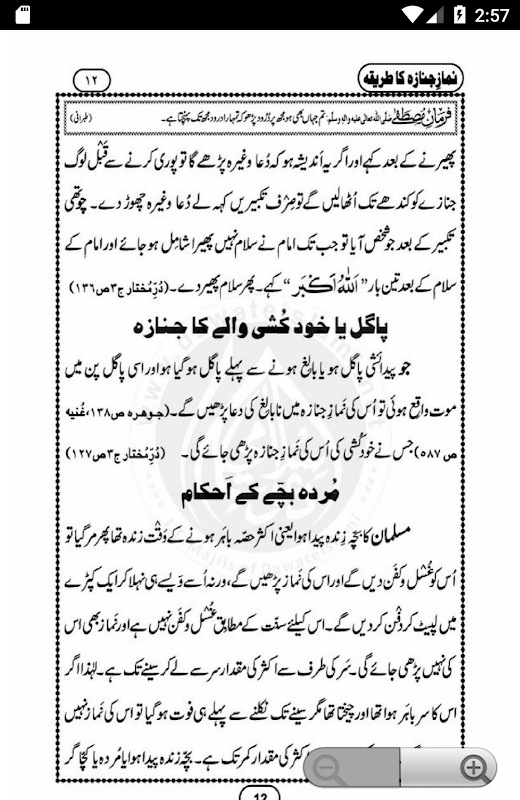 2:57
نمازِ جنازہ کا طریقہ
۱۲
فرمانِ مصطفےٰ صلی اللہ تعالیٰ علیہ واٰلہٖ وسلم: تم جہاں بھی ہو مجھ پر دُرُود پڑھو کہ تمہارا درود مجھ تک پہنچتا ہے۔ (طبرانی)
پھیرنے کے بعد کہے اور اگر یہ اَندیشہ ہو کہ دُعا وغیرہ پڑھے گا تو پوری کرنے سے قَبْل لوگ
جنازے کو کندھے تک اُٹھا لیں گے تو صِرْف تکبیریں کہہ لے دُعا وغیرہ چھوڑ دے۔ چوتھی
تکبیر کے بعد جو شخص آیا تو جب تک امام نے سلام نہیں پھیرا شامِل ہو جائے اور امام کے
سلام کے بعد تین بار ”اَللّٰہُ اَکْبَر“ کہے۔ پھر سلام پھیر دے۔ (دُرِّمُختار ج۳ ص۱۳۶)
پاگل یا خود کُشی والے کا جنازہ
جو پیدائشی پاگل ہو یا بالِغ ہونے سے پہلے پاگل ہو گیا ہو اور اسی پاگل پن میں
موت واقع ہوئی تو اُس کی نَمازِ جنازہ میں نابالغ کی دعا پڑھیں گے۔ (جوہرہ ص۱۳۸، غُنیہ
ص ۵۸۷) جس نے خود کُشی کی اُس کی نَمازِ جنازہ پڑھی جائے گی۔ (دُرِّمُختار ج۳ ص۱۲۷)
مُردہ بچّے کے اَحکام
مسلمان کا بچّہ زِندہ پیدا ہوا یعنی اکثر حصّہ باہَر ہونے کے وَقْت زندہ تھا پھر مر گیا تو
اُس کو غُسْل و کفن دیں گے اور اس کی نَماز پڑھیں گے، ورنہ اُسے وَیسے ہی نہلا کر ایک کپڑے
میں لپیٹ کر دَفْن کر دیں گے۔ اس کیلئے سنّت کے مطابِق غُسْل و کفن نہیں ہے اور نَماز بھی اس
کی نہیں پڑھی جائے گی۔ سَر کی طرف سے اکثر کی مقدار سر سے لے کر سینے تک ہے۔ لہٰذا اگر
اس کا سر باہَر ہوا تھا اور چیختا تھا مگر سینے تک نکلنے سے پہلے ہی فوت ہو گیا تو اس کی نَماز نہیں
اکثر کی مقدار کمر تک ہے۔ بچّہ زندہ پیدا ہوا یا مُردہ یا کچّا گر
12